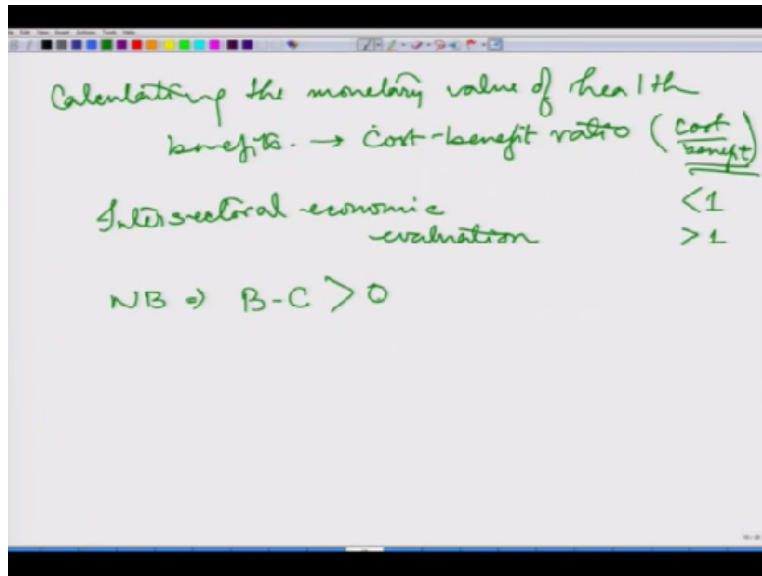 Calculating the monetary value of health
benefits. → Cost-benefit ratio (cost/benefit)
Intersectoral economic <1
evaluation >1
NB ⇒ B-C > 0